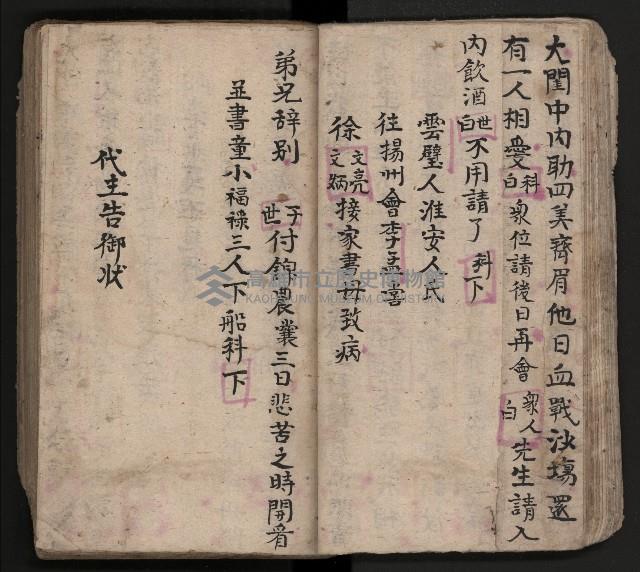 大閨中內助四美齊眉他日血戰沙塲還
有一人相愛科白衆位請後日再會衆人白先生請入
內飲酒世白不用請了科下
雲璧人淮安人氏
往揚州會李孟喜
徐文亮文炳接家書母致病
弟兄辞别于世付錦囊三日悲苦之時開看
並書童小福祿三人下船科下
代主告御状
高雄市立歷史博物館
KAOHSIUNG MUSEUM OF HISTORY